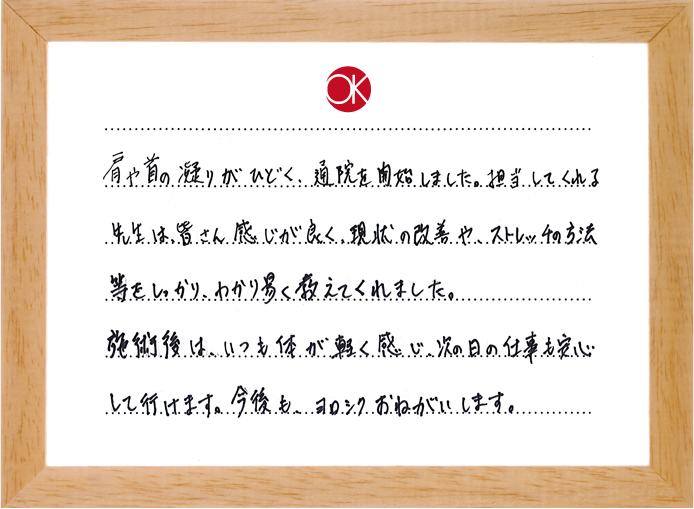 OK
肩や首の凝りがひどく、通院を開始しました。担当してくれる
先生は、皆さん感じが良く、現状の改善や、ストレッチの方法
等をしっかり、わかり易く教えてくれました。
施術後は、いつも体が軽く感じ、次の日の仕事も安心
して行けます。今後も、ヨロシクおねがいします。